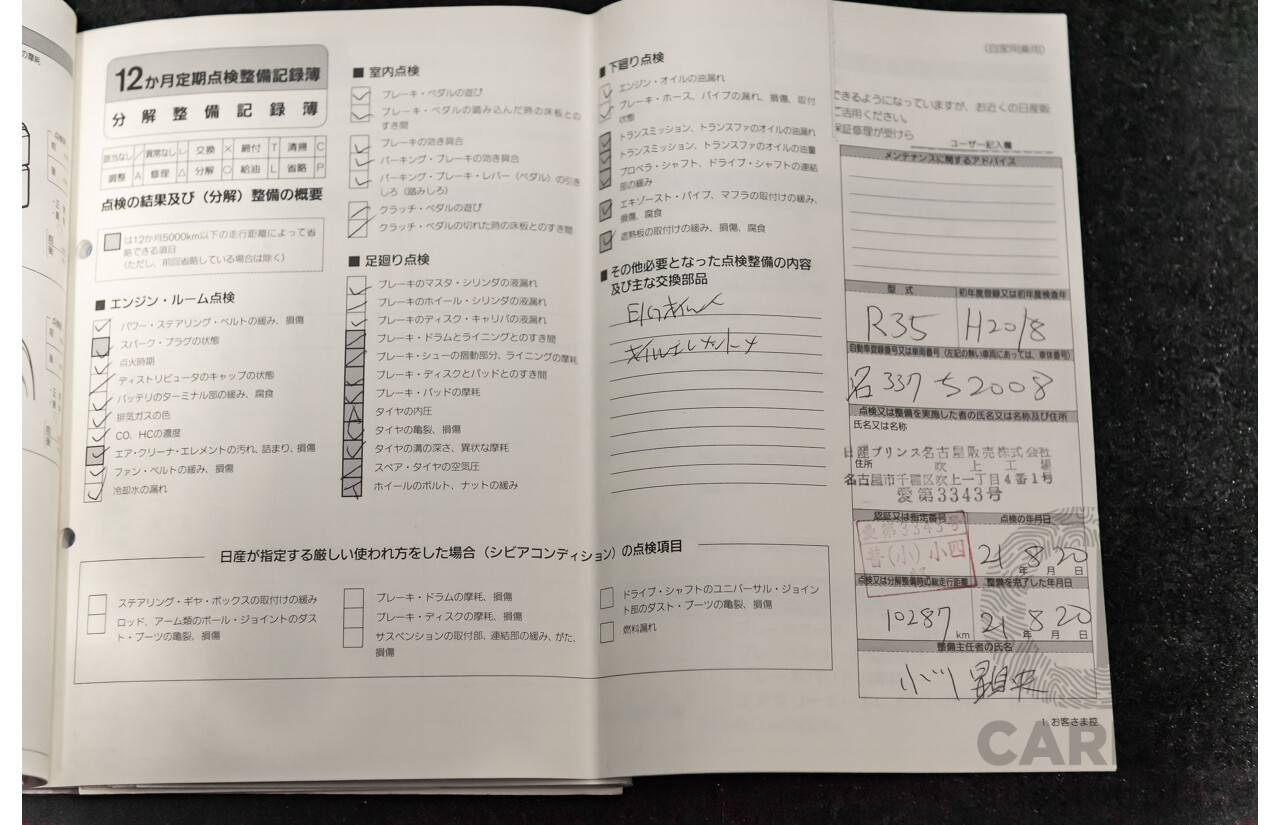 の摩耗、
12か月定期点検整備記録簿
分解整備記録簿
該当なし / 異常なし レ 交換 × 締付 T 清掃 C
調整 A 修理 △ 分解 ○ 給油 L 省略 P
点検の結果及び（分解）整備の概要
は12か月5000km以下の走行距離によって省
略できる項目
（ただし、前回省略している場合は除く）
■ エンジン・ルーム点検
パワー・ステアリング・ベルトの緩み、損傷
スパーク・プラグの状態
点火時期
ディストリビュータのキャップの状態
バッテリのターミナル部の緩み、腐食
排気ガスの色
CO、HCの濃度
エア・クリーナ・エレメントの汚れ、詰まり、損傷
ファン・ベルトの緩み、損傷
冷却水の漏れ
■ 室内点検
ブレーキ・ペダルの遊び
ブレーキ・ペダルの踏み込んだ時の床板との
すき間
ブレーキの効き具合
パーキング・ブレーキの効き具合
パーキング・ブレーキ・レバー（ペダル）の引き
しろ（踏みしろ）
クラッチ・ペダルの遊び
クラッチ・ペダルの切れた時の床板とのすき間
■ 足廻り点検
ブレーキのマスタ・シリンダの液漏れ
ブレーキのホイール・シリンダの液漏れ
ブレーキのディスク・キャリパの液漏れ
ブレーキ・ドラムとライニングとのすき間
ブレーキ・シューの摺動部分、ライニングの摩耗
ブレーキ・ディスクとパッドとのすき間
ブレーキ・パッドの摩耗
タイヤの内圧
タイヤの亀裂、損傷
タイヤの溝の深さ、異状な摩耗
スペア・タイヤの空気圧
ホイールのボルト、ナットの緩み
■ 下廻り点検
エンジン・オイルの油漏れ
ブレーキ・ホース、パイプの漏れ、損傷、取付
状態
トランスミッション、トランスファのオイルの油漏れ
トランスミッション、トランスファのオイルの油量
プロペラ・シャフト、ドライブ・シャフトの連結
部の緩み
エキゾースト・パイプ、マフラの取付けの緩み、
損傷、腐食
遮熱板の取付けの緩み、損傷、腐食
■ その他必要となった点検整備の内容
及び主な交換部品
E/Gオイル
オイルエレメント
日産が指定する厳しい使われ方をした場合（シビアコンディション）の点検項目
ステアリング・ギヤ・ボックスの取付けの緩み
ロッド、アーム類のボール・ジョイントのダス
ト・ブーツの亀裂、損傷
ブレーキ・ドラムの摩耗、損傷
ブレーキ・ディスクの摩耗、損傷
サスペンションの取付部、連結部の緩み、がた、
損傷
ドライブ・シャフトのユニバーサル・ジョイン
ト部のダスト・ブーツの亀裂、損傷
燃料漏れ
（自家用乗用）
できるようになっていますが、お近くの日産販
ご活用ください。
保証修理が受けら
ユーザー記入欄
メンテナンスに関するアドバイス
型式 初年度登録又は初年度検査年
R35 H2018
自動車登録番号又は車両番号（左記の無い車両にあっては、車体番号）
名 337 ち 2008
点検又は整備を実施した者の氏名又は名称及び住所
氏名又は名称
日産プリンス名古屋販売株式会社
住所 吹上工場
名古屋市千種区吹上一丁目4番1号
愛第3343号
認証又は指定番号 点検の年月日
愛第3343号
普(小)小四
21年 8月 20日
点検又は分解整備時の総走行距離 整備を完了した年月日
10287 km 21年 8月 20日
整備主任者の氏名
1. お客さま控
CAR